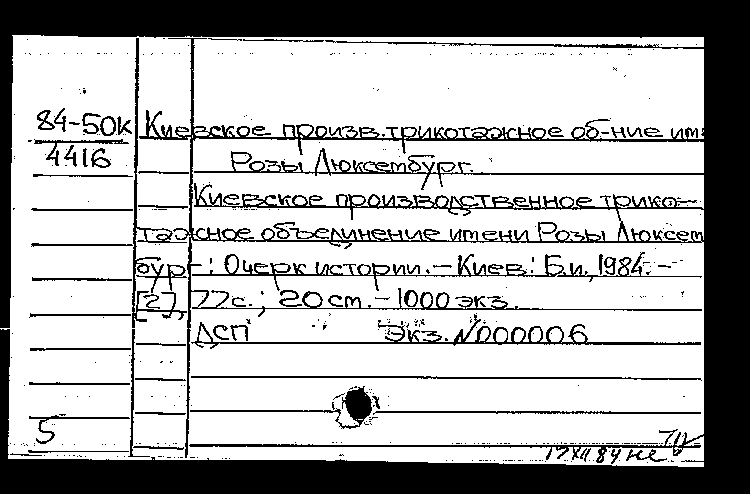 84-50к Киевское произв. трикотажное об-ние им
4416 Розы Люксембург.
Киевское производственное трико-
тажное объединение имени Розы Люксем
бург: Очерк истории. - Киев: Б.и., 1984. -
[2], 77с.; 20 cm. - 1000 экз.
ДСП Экз. №000006
5
17 XII 84